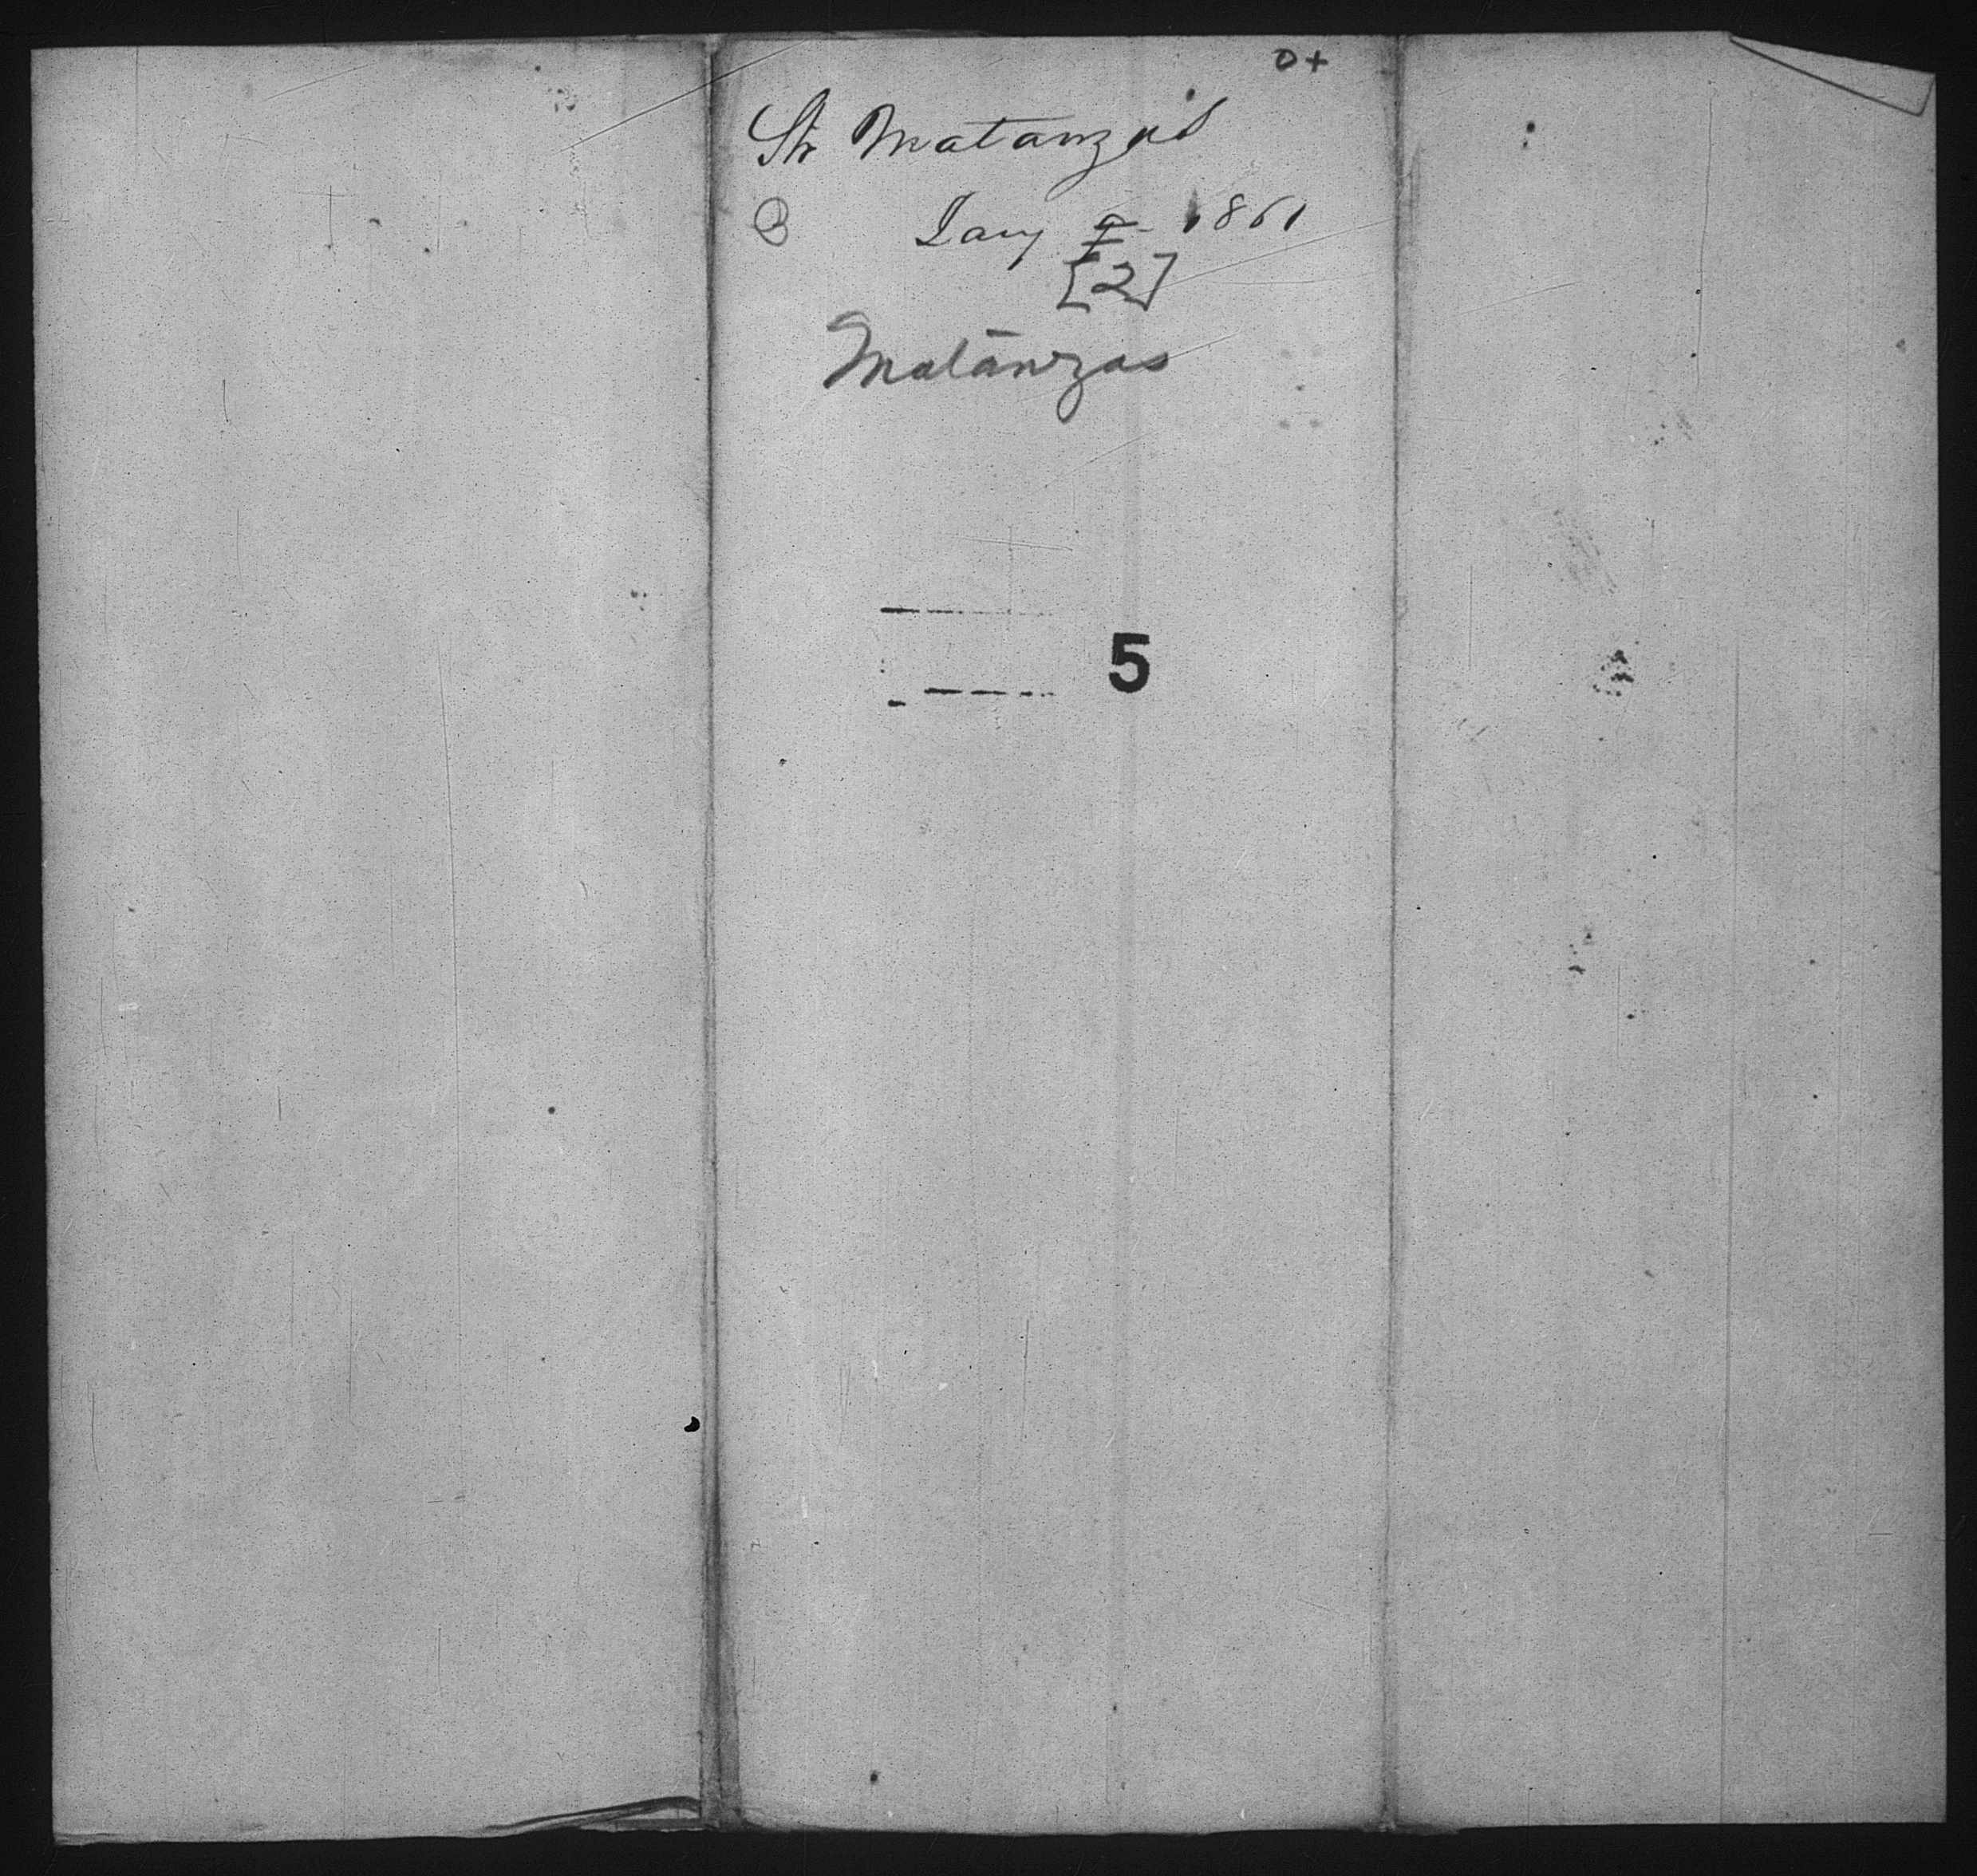 0+
Str Matanzas
B Jany 7 1861
[2]
Matanzas
5